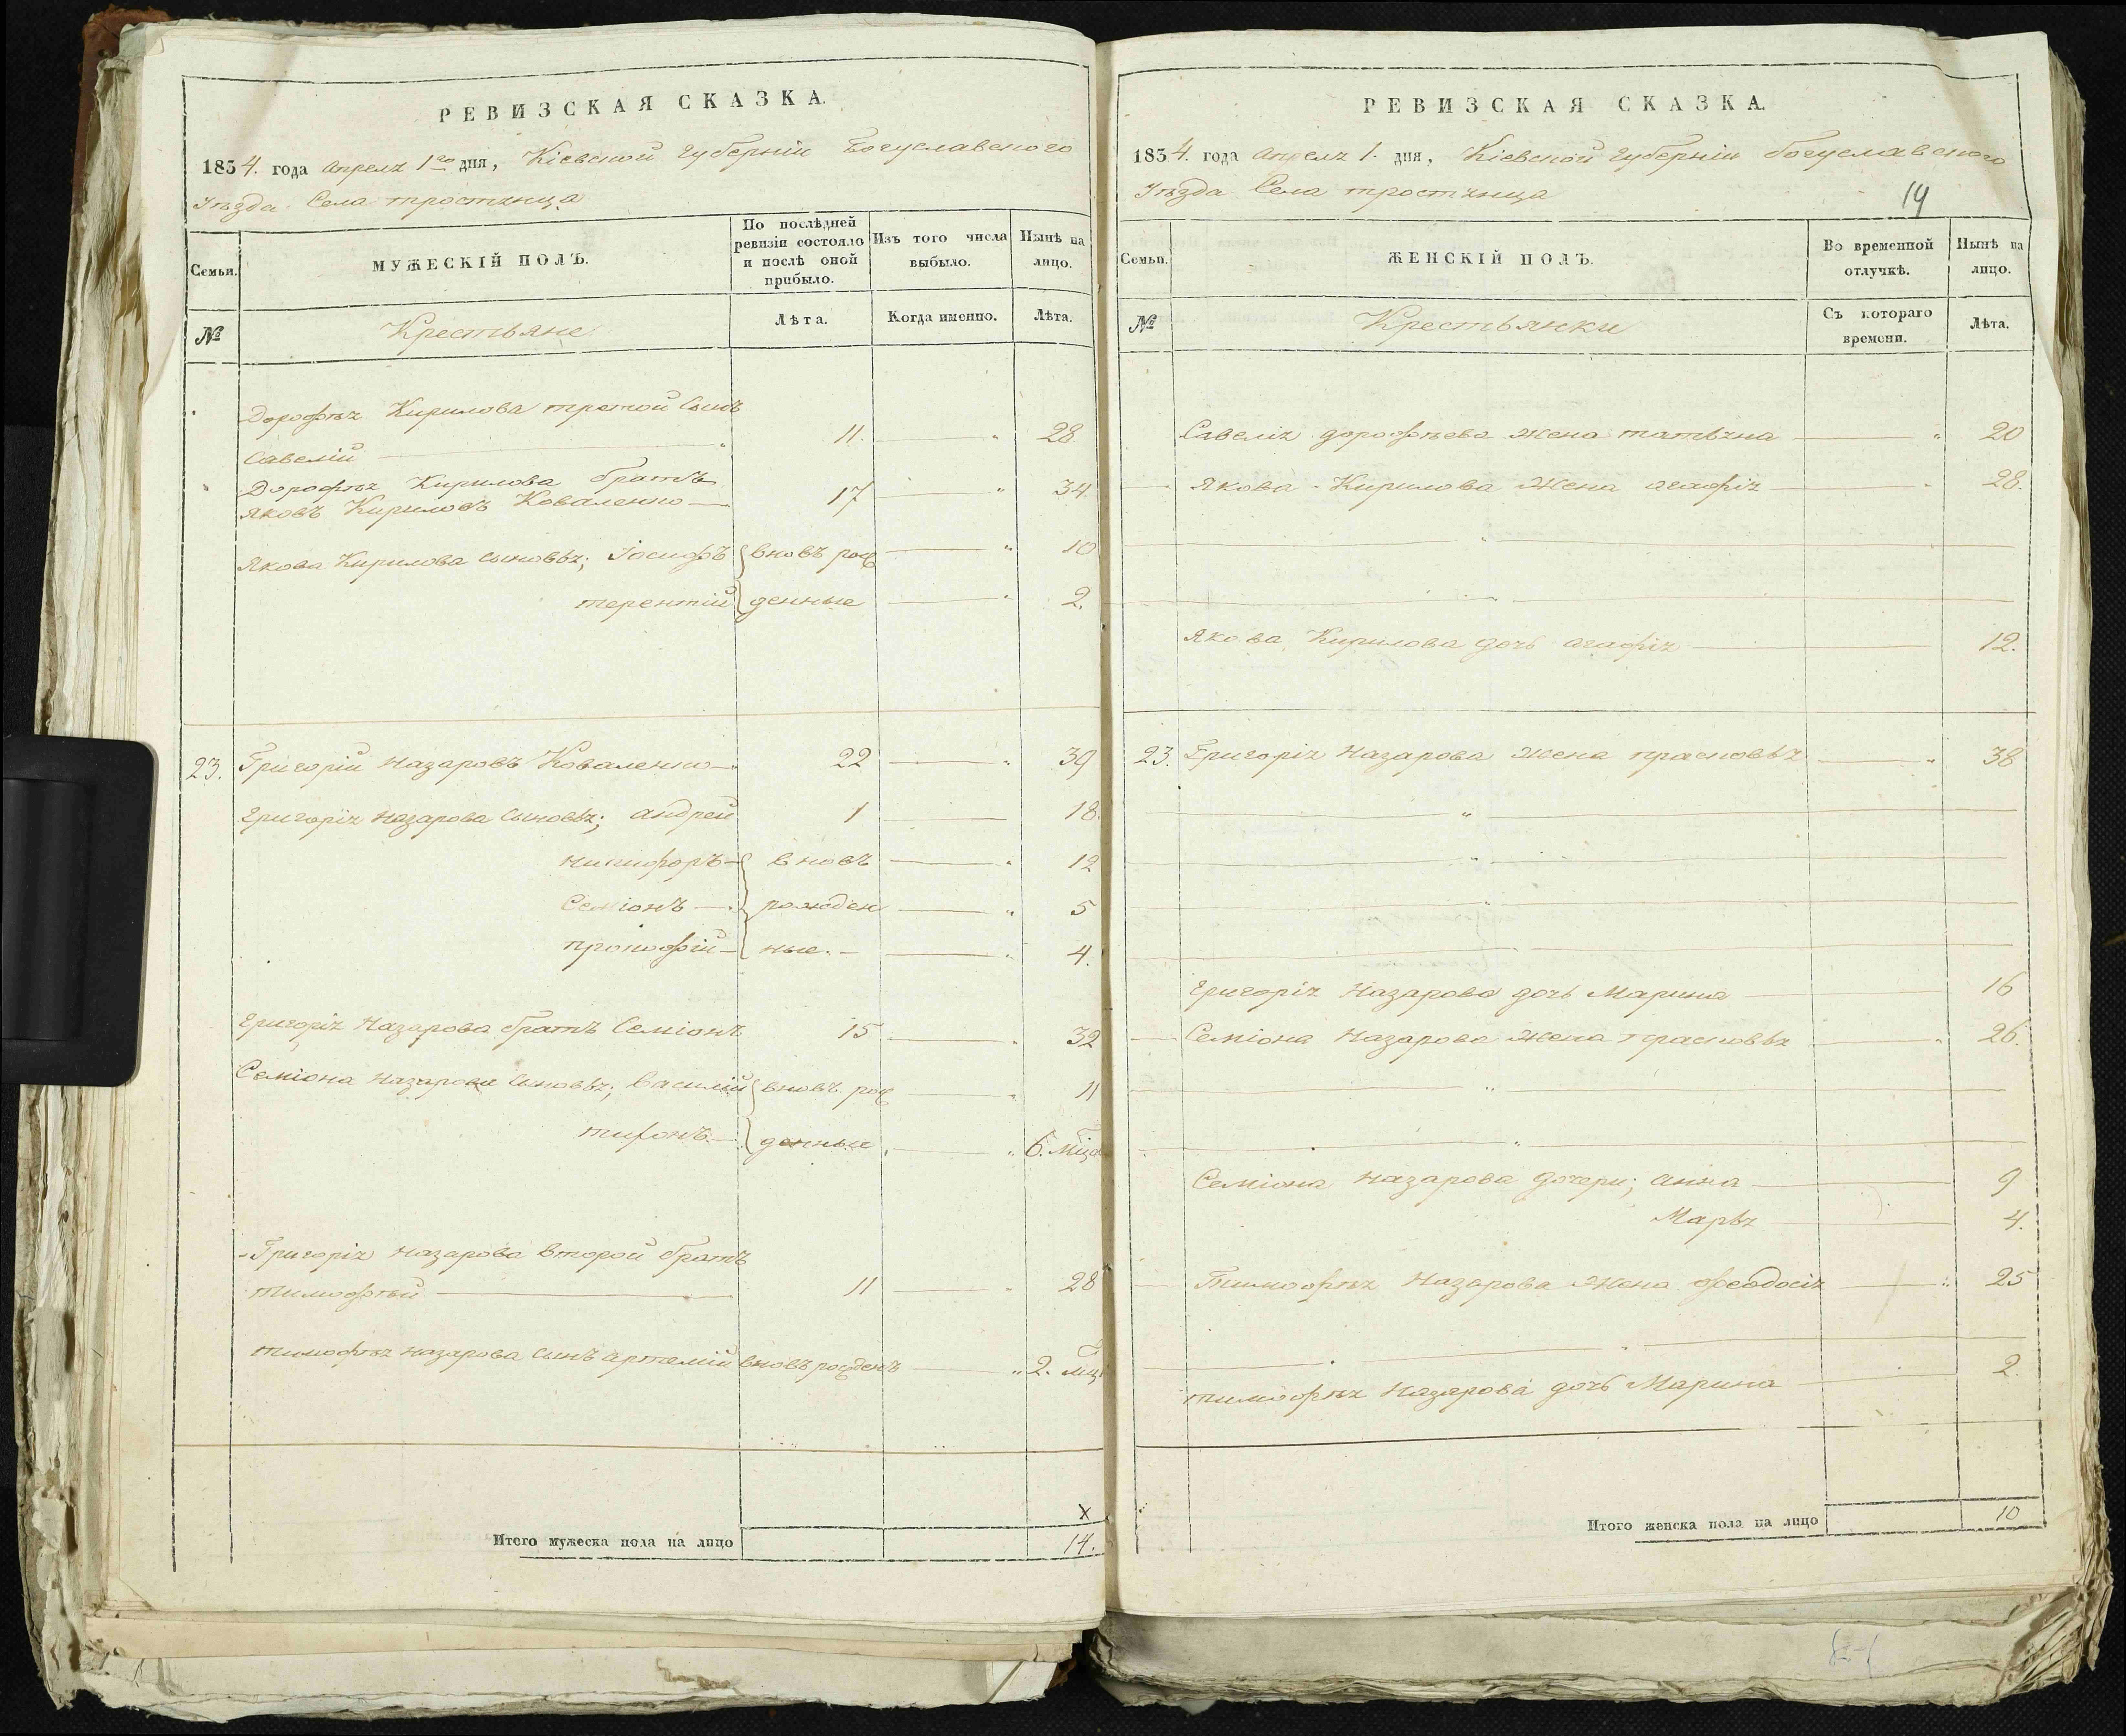 РЕВИЗСКАЯ СКАЗКА.
1854. года апреля 1го дня, Кіевской губерніи Богуславского
Уѣзда Села тростянца
Семьи.
МУЖЕСКІЙ ПОЛЪ.
По послѣдней ревизіи состояло и послѣ оной прибыло.
Изъ того числа выбыло.
Нынѣ на лицо.
№
Крестьяне
Лѣта.
Когда именно.
Лѣта.
Дорофѣя Кирилова третой Сынъ
Савелій 11. 28
Дорофѣя Кирилова братъ
Яковъ Кириловъ Коваленко 17 34.
Якова Кирилова сыновья; Іосифъ вновь рож 10
терентій денные 2.
23. Григорій Назаровъ Коваленко 22 39
Григорія Назарова Сыновья; андрей 1 18.
никифоръ вновь 12
Семіонъ рожден 5
прокофій ные. 4.
Григорія Назарова братъ Семіонъ 15 32
Семіона Назарова Сыновья; Василій вновь рож 11
тифонъ денные 6. мѣся
Григорія Назарова Второй братъ
тимофѣй 11 28
тимофѣя Назарова Сынъ артемій вновь рожденъ 2. мц
x
Итого мужеска пола на лицо 14.
РЕВИЗСКАЯ СКАЗКА.
1854. года апреля 1. дня, Кіевской губерніи богуславского
Уѣзда Села тростянца
19
Семьи.
ЖЕНСКІЙ ПОЛЪ.
Во временной отлучкѣ.
Нынѣ на лицо.
№
Крестьянки
Съ котораго времени.
Лѣта.
Савелія дорофѣева жена татьяна 20
Якова Кирилова жена агафія 28.
Якова Кирилова дочь агафія 12.
23. Григорія Назарова жена прасковья 38
Григорія Назарова дочь Марина 16
Семіона Назарова жена прасковья 26.
Семіона Назарова дочери; анна 9
Марья 4.
Тимофѣя Назарова жена феодосія 25
тимофѣя Назарова дочь Марина 2.
Итого женска пола на лицо 10